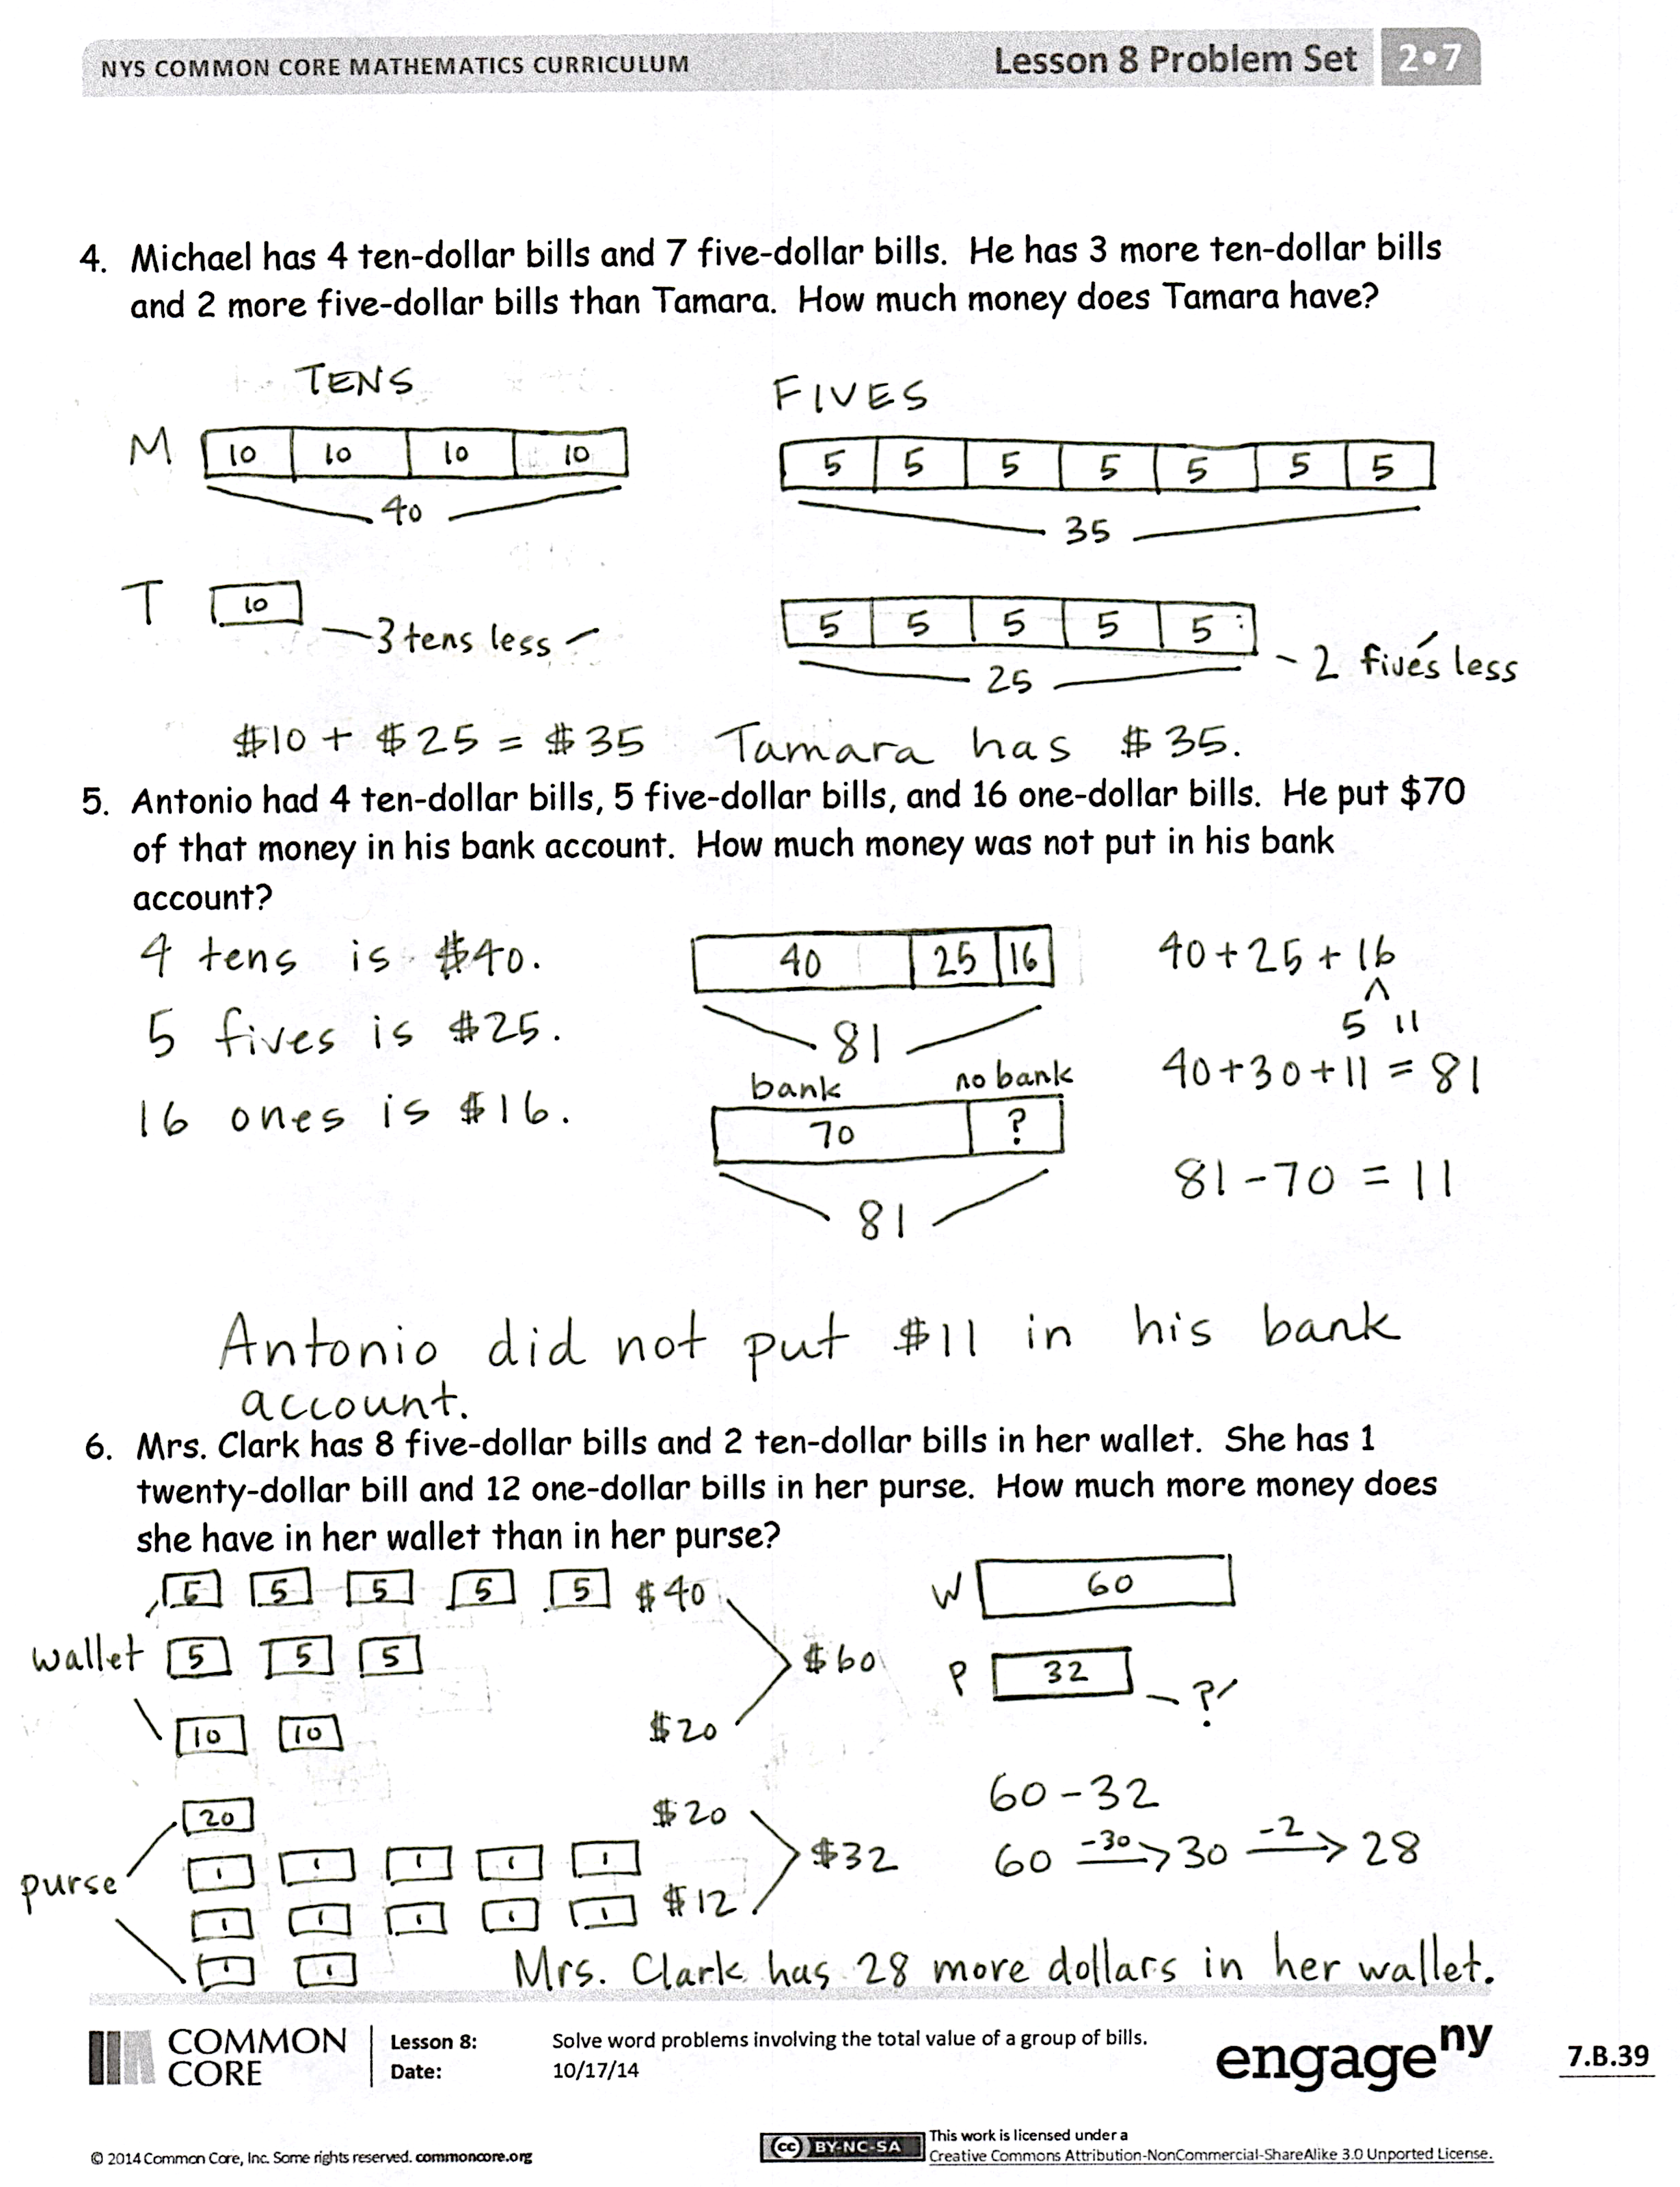 NYS COMMON CORE MATHEMATICS CURRICULUM Lesson 8 Problem Set 2•7
4. Michael has 4 ten-dollar bills and 7 five-dollar bills. He has 3 more ten-dollar bills
and 2 more five-dollar bills than Tamara. How much money does Tamara have?
TENS FIVES
M 10 10 10 10 5 5 5 5 5 5 5
40 35
T 10 5 5 5 5 5
3 tens less 25 2 fives less
$10 + $25 = $35 Tamara has $35.
5. Antonio had 4 ten-dollar bills, 5 five-dollar bills, and 16 one-dollar bills. He put $70
of that money in his bank account. How much money was not put in his bank
account?
4 tens is $40. 40 25 16 40+25+16
5 fives is $25. 81 5 11
bank no bank 40+30+11 = 81
16 ones is $16. 70 ?
81-70 = 11
81
Antonio did not put $11 in his bank
account.
6. Mrs. Clark has 8 five-dollar bills and 2 ten-dollar bills in her wallet. She has 1
twenty-dollar bill and 12 one-dollar bills in her purse. How much more money does
she have in her wallet than in her purse?
5 5 5 5 5 $40 W 60
wallet 5 5 5 $60 P 32 ?
10 10 $20
60-32
20 $20
1 1 1 1 1 $32 60 -30 30 -2 28
purse
1 1 1 1 1 $12
1 1 Mrs. Clark has 28 more dollars in her wallet.
COMMON CORE
Lesson 8: Solve word problems involving the total value of a group of bills.
Date: 10/17/14
engageny
7.B.39
© 2014 Common Core, Inc. Some rights reserved. commoncore.org
cc BY-NC-SA
This work is licensed under a
Creative Commons Attribution-NonCommercial-ShareAlike 3.0 Unported License.